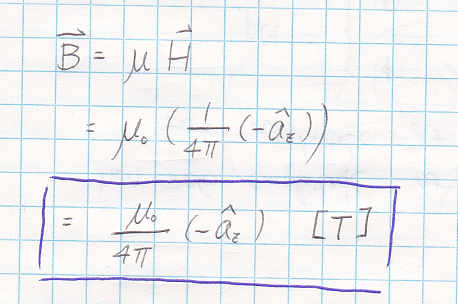 B⃗ = μ H⃗
= μ₀ ( 1/4π (-â_z) )
= μ₀/4π (-â_z) [T]